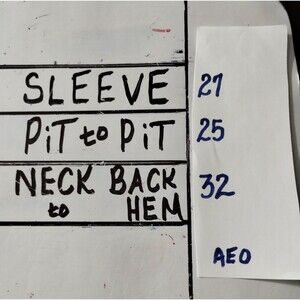 SLEEVE 27
PiT to PiT 25
NECK BACK 32
to HEM
AEO